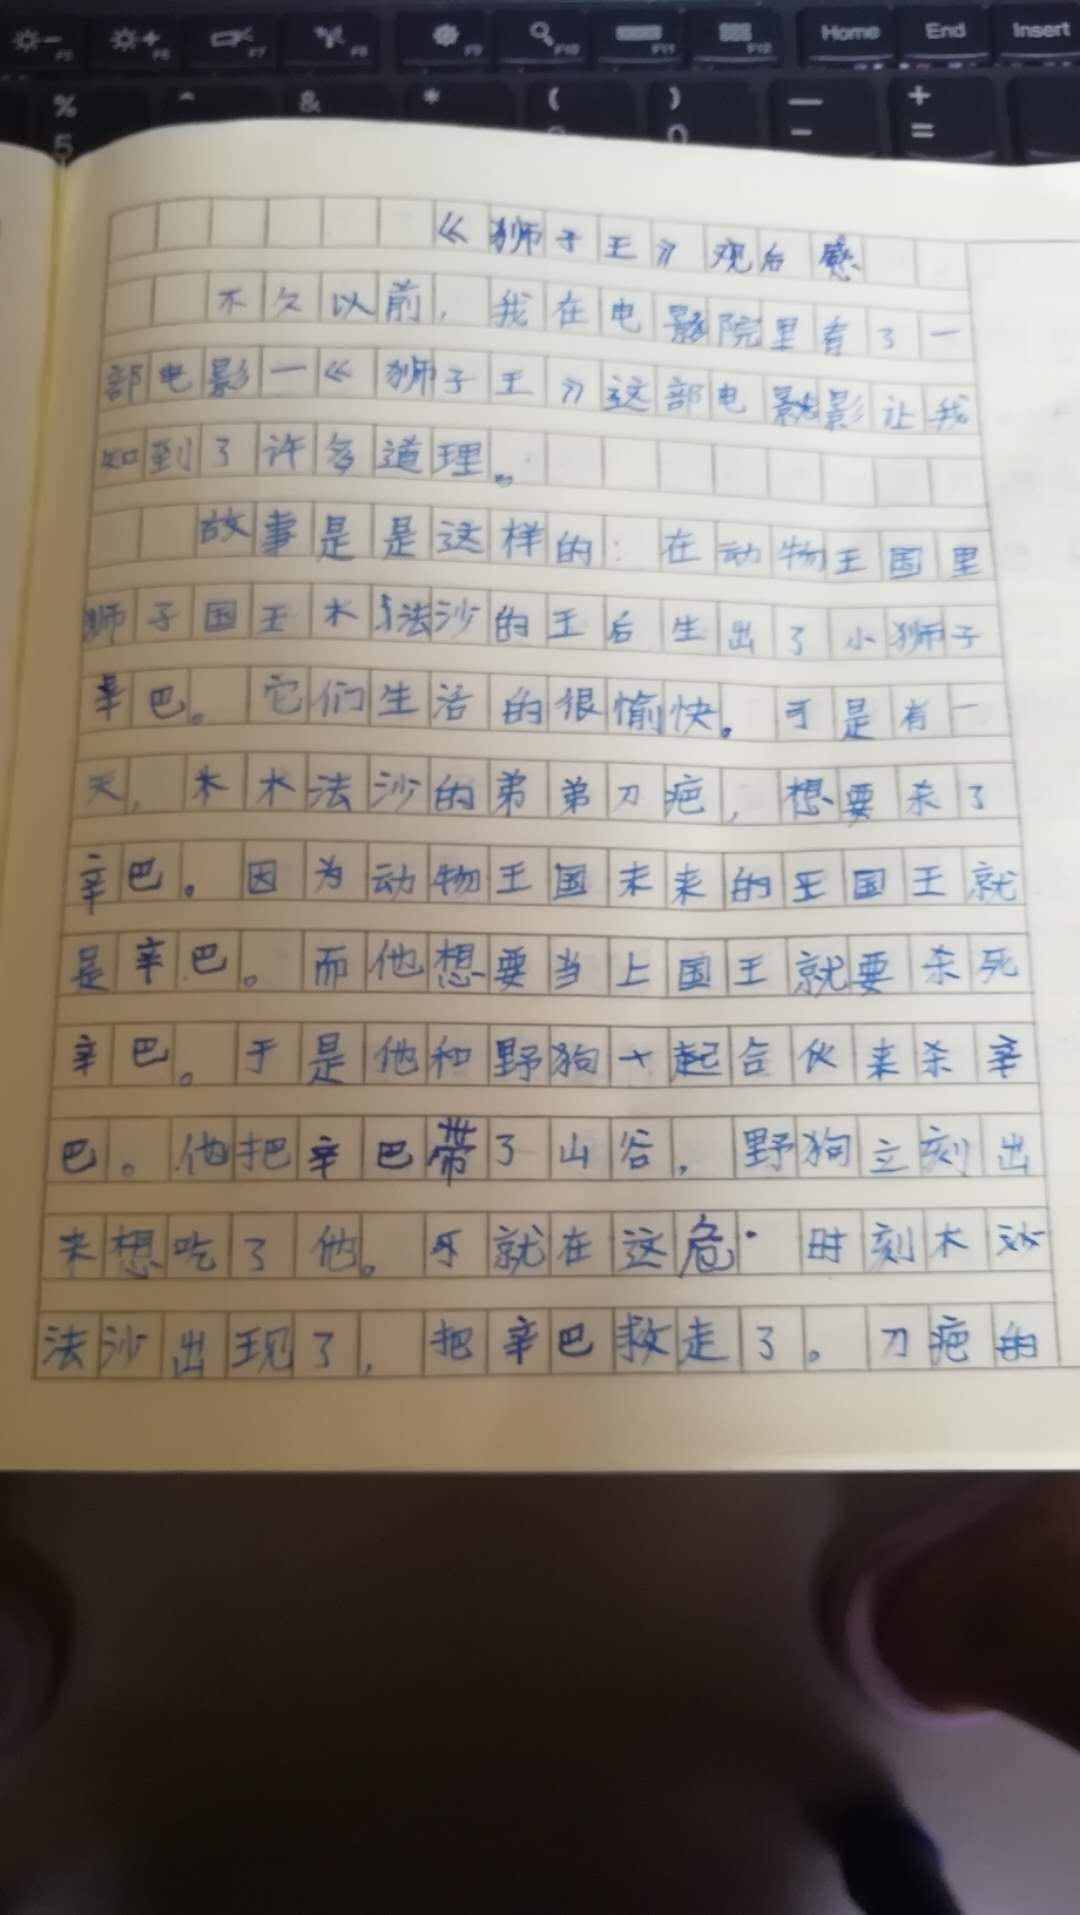 F5 F6 F7 F8 F9 F10 F11 F12 Home End Insert
% ^ & * ( ) — +
5 0 - =
《狮子王》观后感
不久以前，我在电影院里看了一
部电影一《狮子王》这部电影让我
知到了许多道理。
故事是是这样的：在动物王国里
狮子国王木法沙的王后生出了小狮子
辛巴。它们生活的很愉快。可是有一
天，木木法沙的弟弟刀疤，想要杀了
辛巴。因为动物王国未来的王国王就
是辛巴。而他想要当上国王就要杀死
辛巴。于是他和野狗一起合伙来杀辛
巴。他把辛巴带了山谷，野狗立刻出
来想吃了他。可就在这危·时刻木
法沙出现了，把辛巴救走了。刀疤的